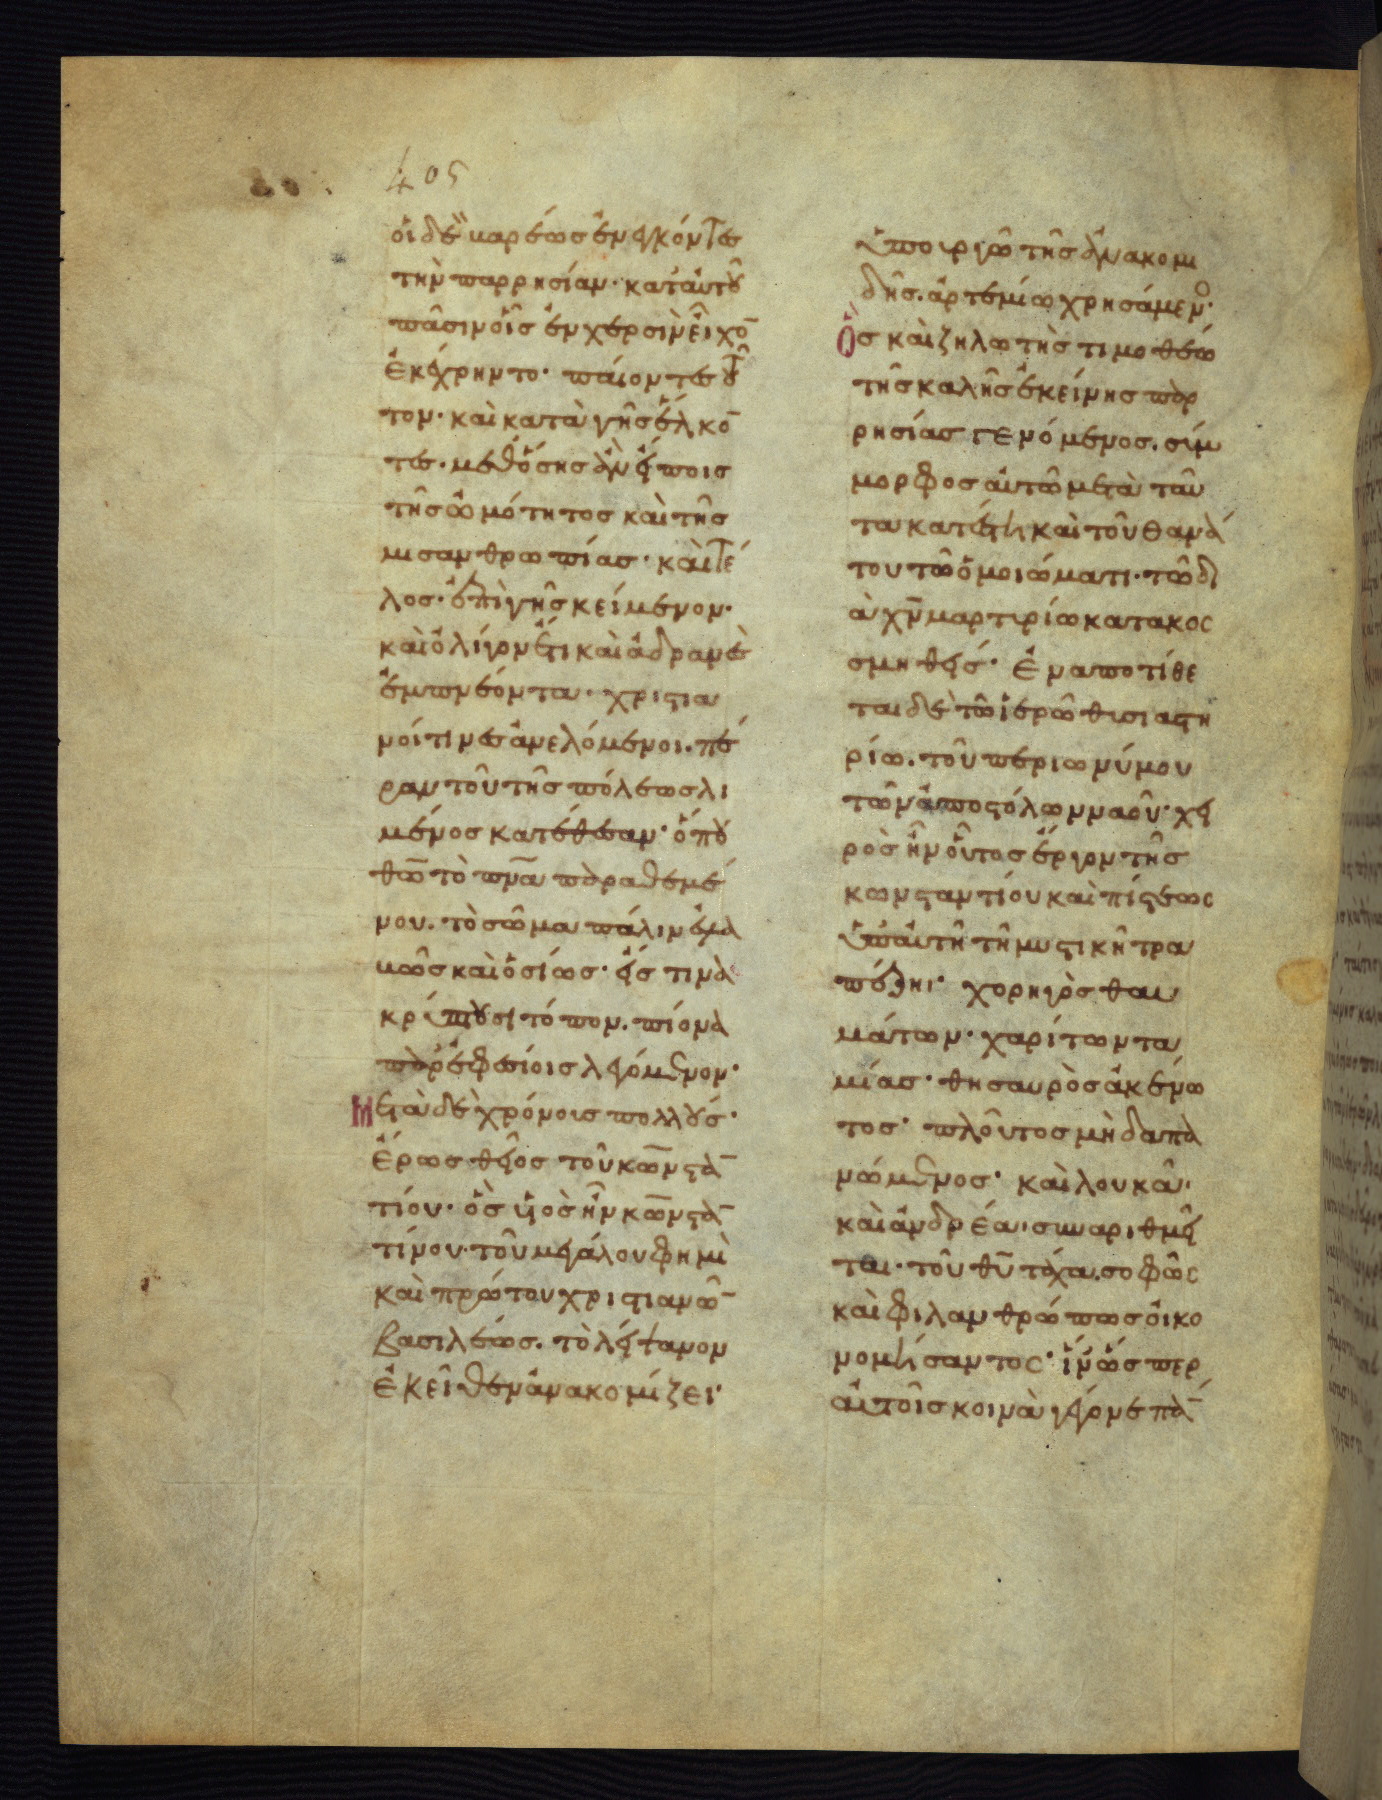 405
οἱ δὲ βαρέως ἐνεγκόντες
τὴν παρρησίαν· κατ' αὐτοῦ
πᾶσιν οἷς ἐν χερσὶν εἶχον
ἐκέχρηντο· παίοντες τοῦ
τον· καὶ κατὰ γῆς ἕλκον
τες. μεθ' ὅσης ἂν εἴποις
τῆς ὠμότητος καὶ τῆς
μισανθρωπίας· καὶ τέ
λος· ἐπὶ γῆς κείμενον·
καὶ ὀλίγον ἔτι καὶ ἀδρανὲς
ἐμπνέοντα· χριστια
νοί τινες ἀνελόμενοι. πέ
ραν τοῦ τῆς πόλεως λι
μένος κατέθεσαν· ὅπου
θω̅ τὸ πν̅α παραθεμέ
νου. τὸ σῶμα πάλιν ἐμα
κῶς καὶ ὁσίως· εἴς τινα
κρύπτουσι τόπον. πίονα
παρ' ἐφεσίοις λεγόμενον·
Μετὰ δὲ χρόνοις πολλούς·
ἔρως θεῖος τοῦ κωνσταν
τίου· ὃς υἱὸς ἦν κωνσταν
τίνου· τοῦ μεγάλου φημὶ
καὶ πρώτου χριστιανῶν
βασιλέως. τὸ λείψανον
ἐκεῖθεν ἀνακομίζει·
ὑπουργῶ τῆς ἀνακομι
δῆς. ἀρτεμίω χρησάμενος·
Ὃς καὶ ζηλωτὴς τιμοθέω
τῆς καλῆς ἐκείνης παρ
ρησίας γενόμενος. σύμ
μορφος αὐτῶ μετὰ ταῦ
τα κατέστη καὶ τοῦ θανά
του τῶ ὁμοιώματι· τῶ δι
ὰ χν̅ μαρτυρίω κατακοσ
σμηθείς· ἐναποτίθε
ται δὲ τῶ ἱερῶ θυσιαστη
ρίω. τοῦ περιωνύμου
τῶν ἀποστόλων ναοῦ· χει
ρὸς ἦν οὗτος ἔργον τῆς
κωνσταντίου καὶ πίστεως
ὑπ' αὐτῆ τῆ μυστικῆ τρα
πέζηι· χορηγὸς θαυ
μάτων· χαρίτων τα
μίας· θησαυρὸς ἀκένω
τος· πλοῦτος μὴ δαπα
νώμενος· καὶ λουκᾶ·
καὶ ἀνδρέα. συναριθμεῖ
ται· τοῦ θυ̅ τάχα. σοφῶς
καὶ φιλανθρώπως οἰκο
νομήσαντος· ἵν' ὥσπερ
αὐτοῖς κοινὰ γέγονε πάν